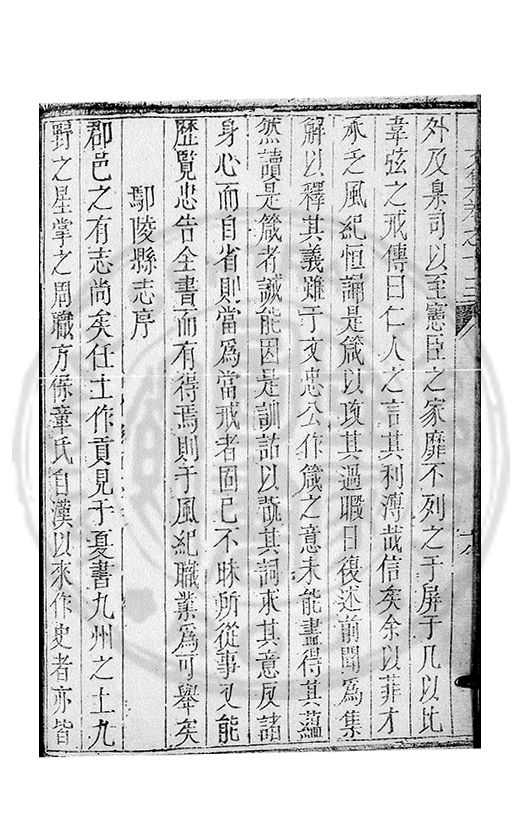 外及臬司以至憲臣之家靡不列之于屏于几以比
韋弦之戒傳曰仁人之言其利溥哉信矣余以菲才
承乏風紀恒誦是箴以攻其過暇日復述前聞爲集
解以釋其義雖于文忠公作箴之意未能盡得其蘊
然讀是箴者誠能因是訓詁以翫其詞求其意反諸
身心而自省則當爲當戒者固已不昧所從事又能
歷覽忠告全書而有得焉則于風紀職業爲可舉矣
鄢陵縣志序
郡邑之有志尚矣任土作貢見于夏書九州之土九
野之星掌之周職方保章氏自漢以來作史者亦皆